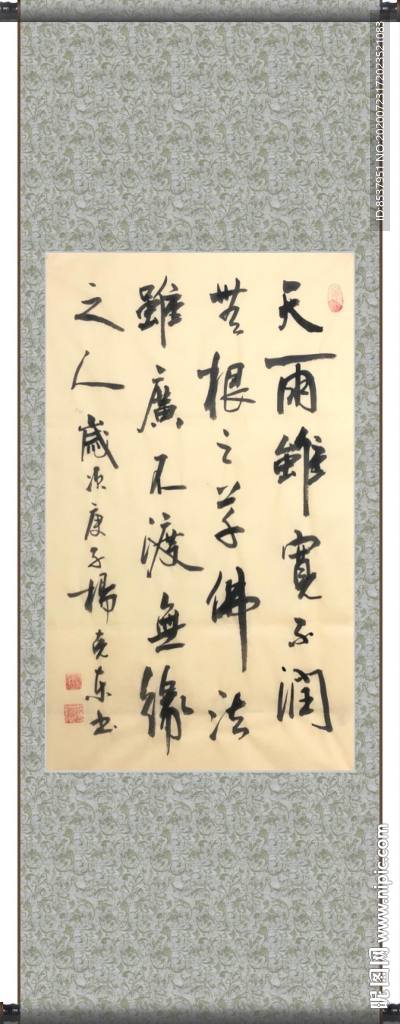 天雨雖寬不潤
無根之草佛法
雖廣不渡無緣
之人 歲次庚子楊克東書
ID:8537951 NO:20200723172023521083
昵图网 www.nipic.com